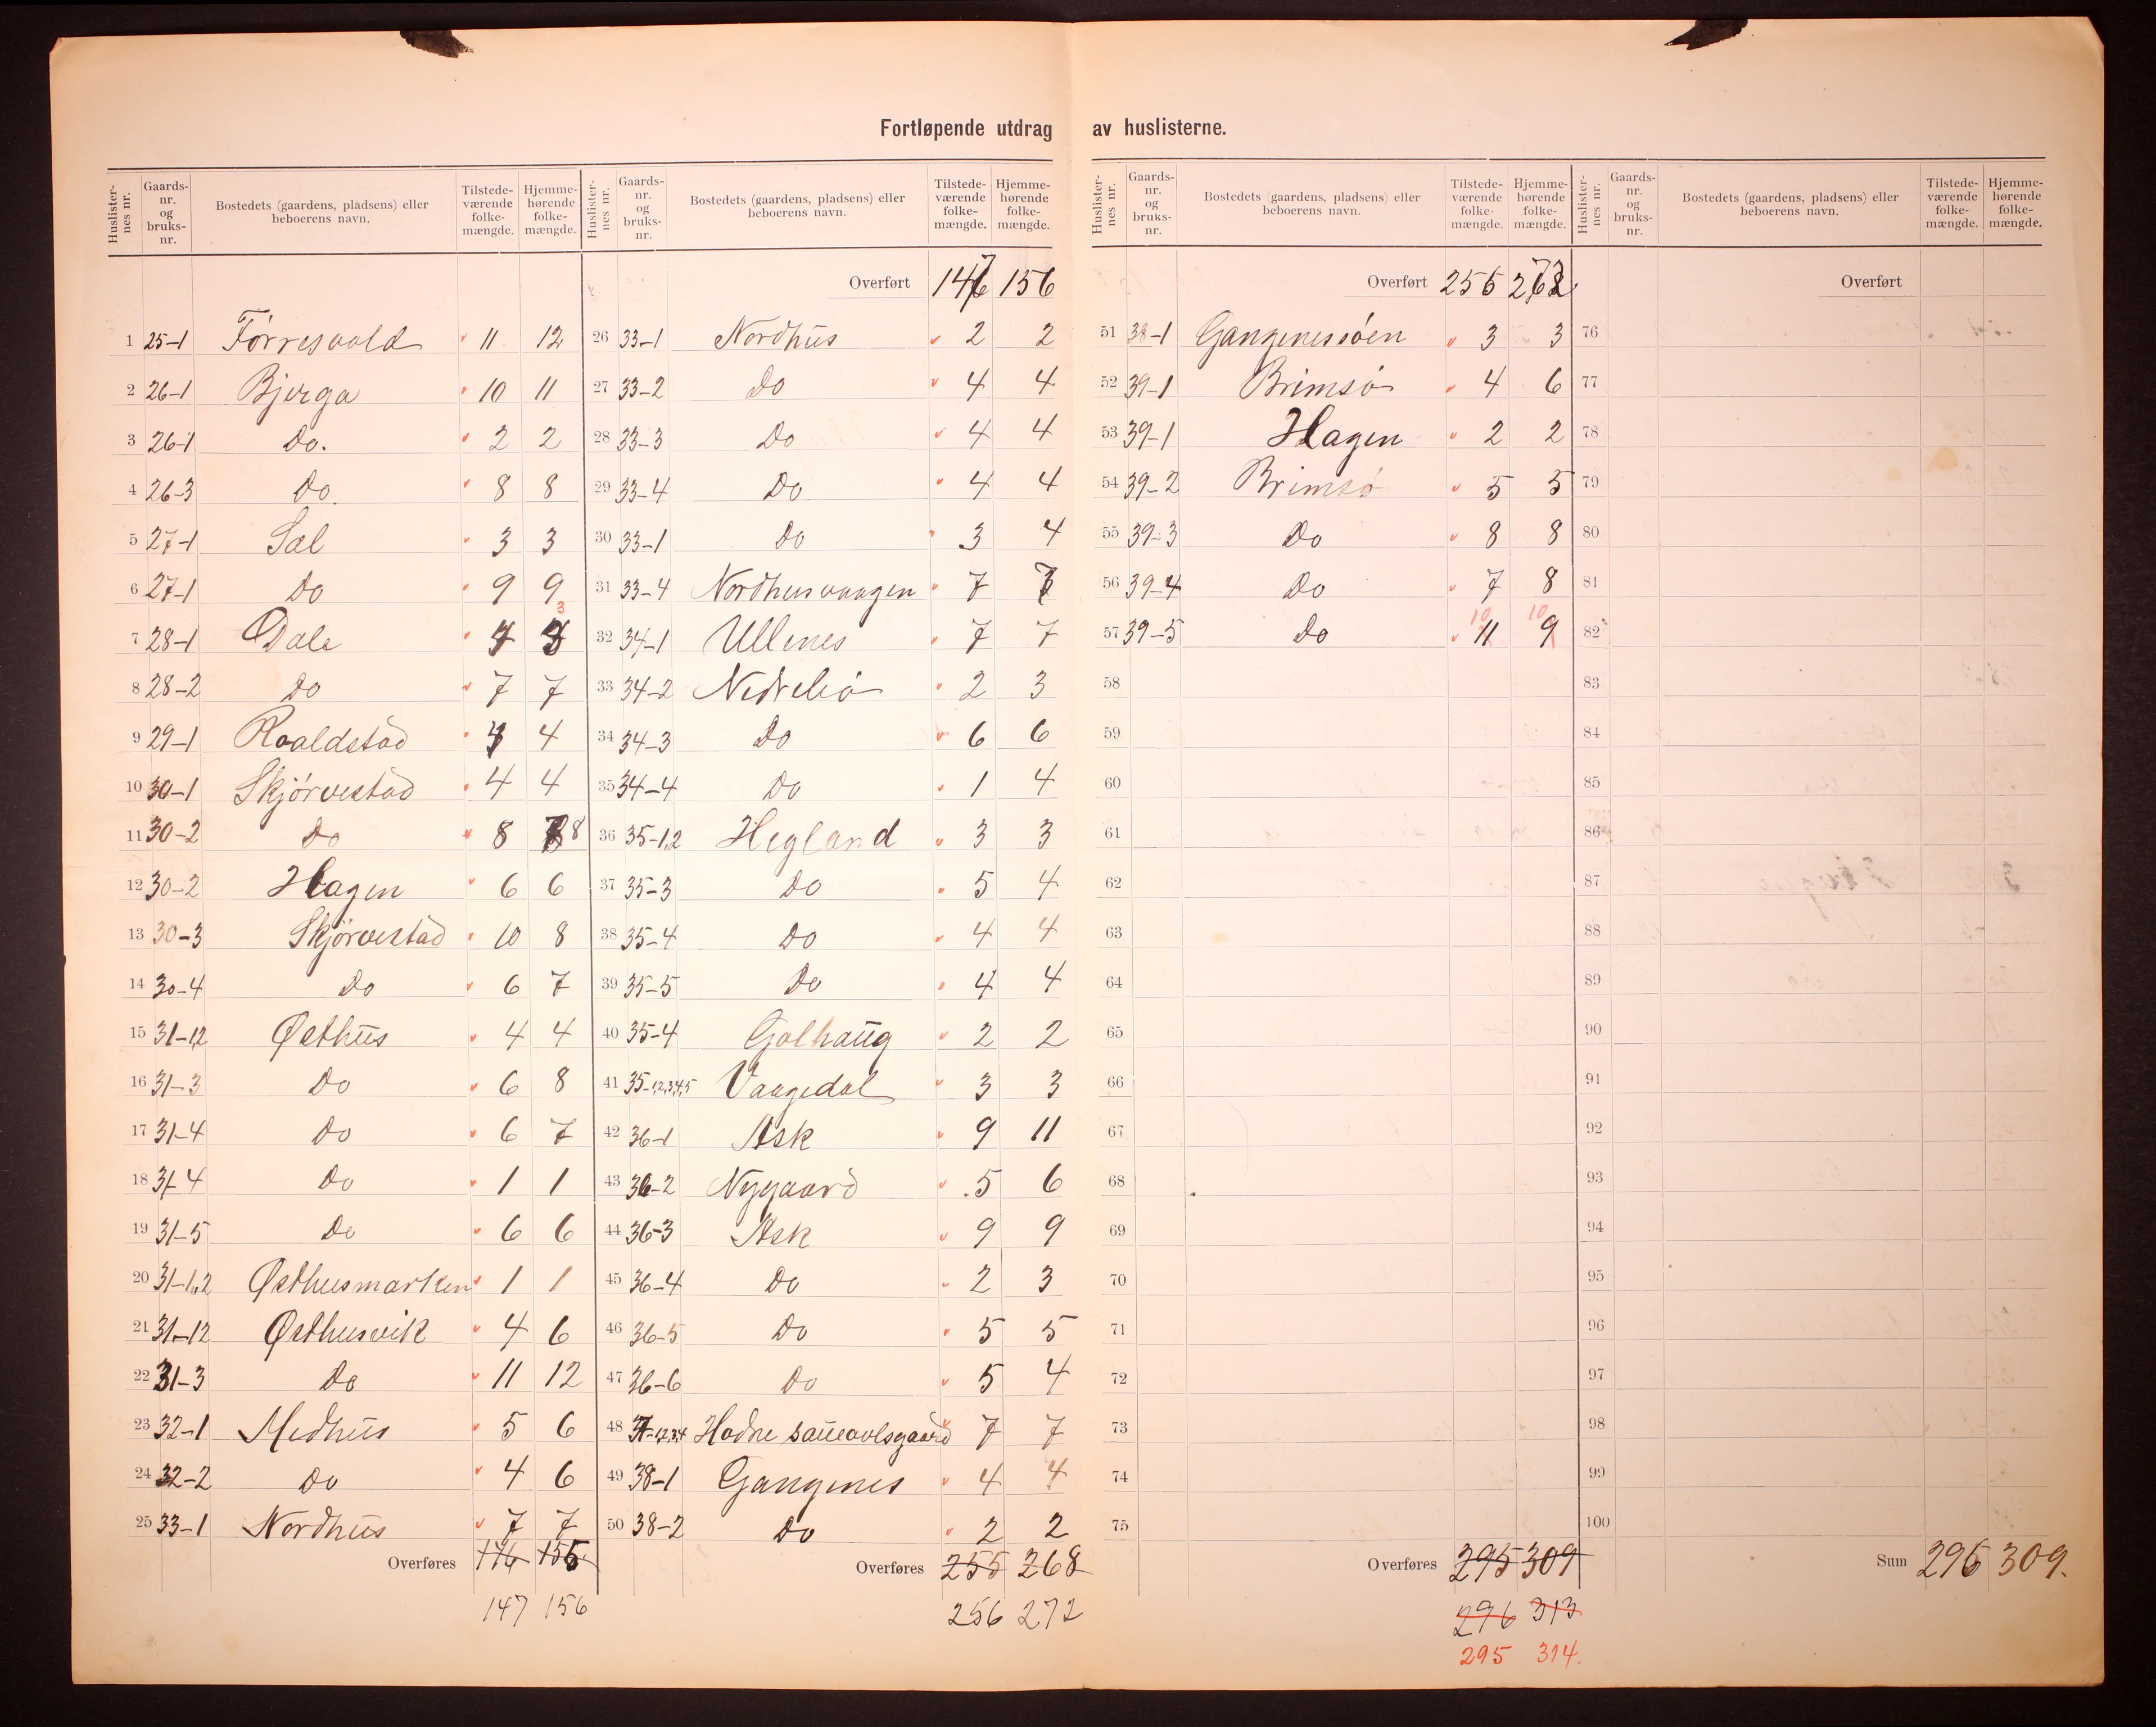 Fortløpende utdrag av huslisterne.
Huslisternes nr. Gaards-nr. og bruks-nr. Bostedets (gaardens, pladsens) eller beboerens navn. Tilstede-værende folke-mængde. Hjemme-hørende folke-mængde.
1 25-1 Førresvold 11 12
2 26-1 Bjerga 10 11
3 26-1 Do. 2 2
4 26-3 Do. 8 8
5 27-1 Sæl 3 3
6 27-1 Do 9 9
7 28-1 Dale 3
8 28-2 Do 7 7
9 29-1 Roaldstad 4
10 30-1 Skjørvestad 4 4
11 30-2 Do 8 8
12 30-2 Hagen 6 6
13 30-3 Skjørvestad 10 8
14 30-4 Do 6 7
15 31-1,2 Østhus 4 4
16 31-3 Do 6 8
17 31-4 Do 6 7
18 31-4 Do 1 1
19 31-5 Do 6 6
20 31-1,2 Østhusmarken 1 1
21 31-12 Østhusvik 4 6
22 31-3 Do 11 12
23 32-1 Medhus 5 6
24 32-2 Do 4 6
25 33-1 Nordhus 7 7
Overføres 146 155
147 156
Huslisternes nr. Gaards-nr. og bruks-nr. Bostedets (gaardens, pladsens) eller beboerens navn. Tilstede-værende folke-mængde. Hjemme-hørende folke-mængde.
Overført 147 156
26 33-1 Nordhus 2 2
27 33-2 Do 4 4
28 33-3 Do 4 4
29 33-4 Do 4 4
30 33-1 Do 3 4
31 33-4 Nordhusvaagen 7 7
32 34-1 Ullenes 7 7
33 34-2 Nedrebø 2 3
34 34-3 Do 6 6
35 34-4 Do 1 4
36 35-1,2 Hegland 3 3
37 35-3 Do 5 4
38 35-4 Do 4 4
39 35-5 Do 4 4
40 35-4 Golhaug 2 2
41 35-1,2,3,4,5 Vaagedal 3 3
42 36-1 Ask 9 11
43 36-2 Nygaard 5 6
44 36-3 Ask 9 9
45 36-4 Do 2 3
46 36-5 Do 5 5
47 36-6 Do 5 4
48 37-1,2,3,4 Hodne saueavlsgaard 7 7
49 38-1 Gangenes 4 4
50 38-2 Do 2 2
Overføres 255 268
256 272
Huslisternes nr. Gaards-nr. og bruks-nr. Bostedets (gaardens, pladsens) eller beboerens navn. Tilstede-værende folke-mængde. Hjemme-hørende folke-mængde.
Overført 256 272
51 38-1 Gangenessøen 3 3
52 39-1 Brimsø 4 6
53 39-1 Hagen 2 2
54 39-2 Brimsø 5 5
55 39-3 Do 8 8
56 39-4 Do 7 8
10 10
57 39-5 Do 11 9
58
59
60
61
62
63
64
65
66
67
68
69
70
71
72
73
74
75
Overføres 295 309
296 313
295 314.
Huslisternes nr. Gaards-nr. og bruks-nr. Bostedets (gaardens, pladsens) eller beboerens navn. Tilstede-værende folke-mængde. Hjemme-hørende folke-mængde.
Overført
76
77
78
79
80
81
82
83
84
85
86
87
88
89
90
91
92
93
94
95
96
97
98
99
100
Sum 295 309.